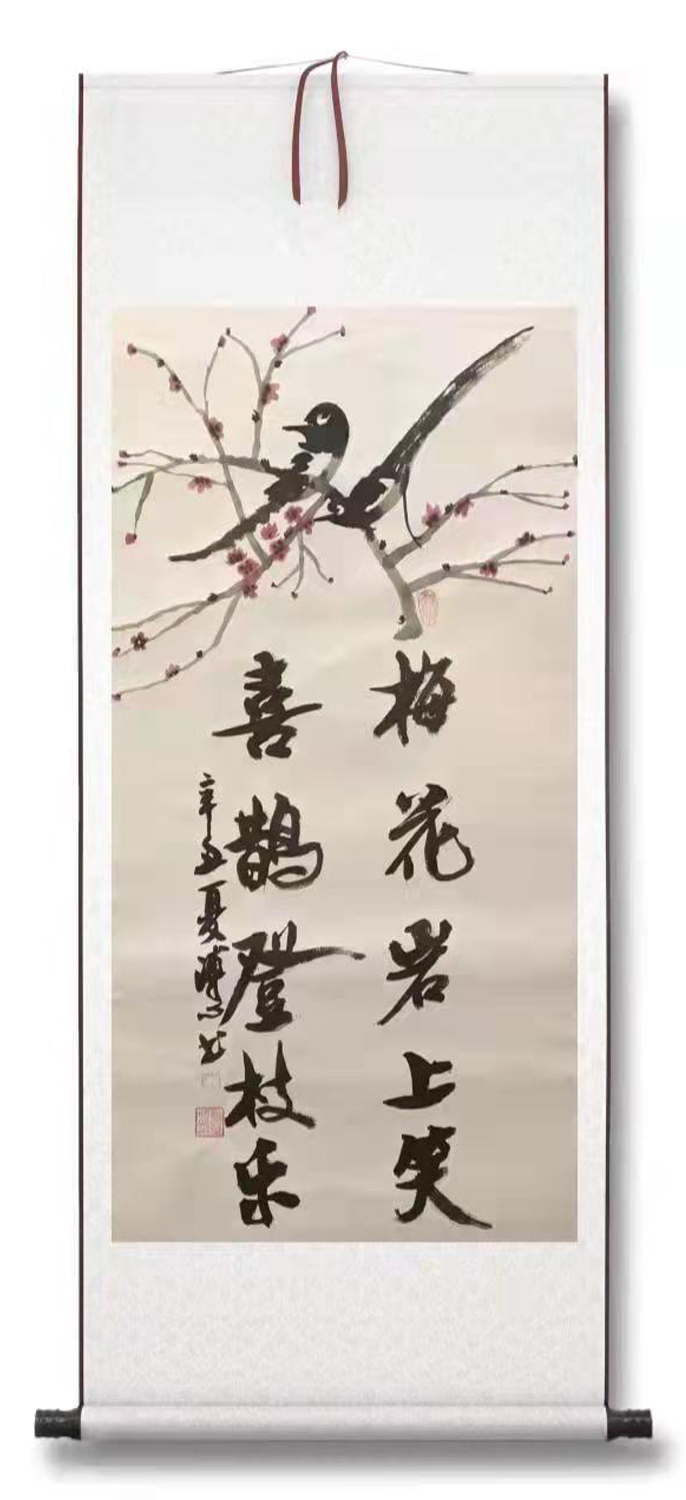 梅花岩上笑
喜鹊登枝乐
辛丑夏